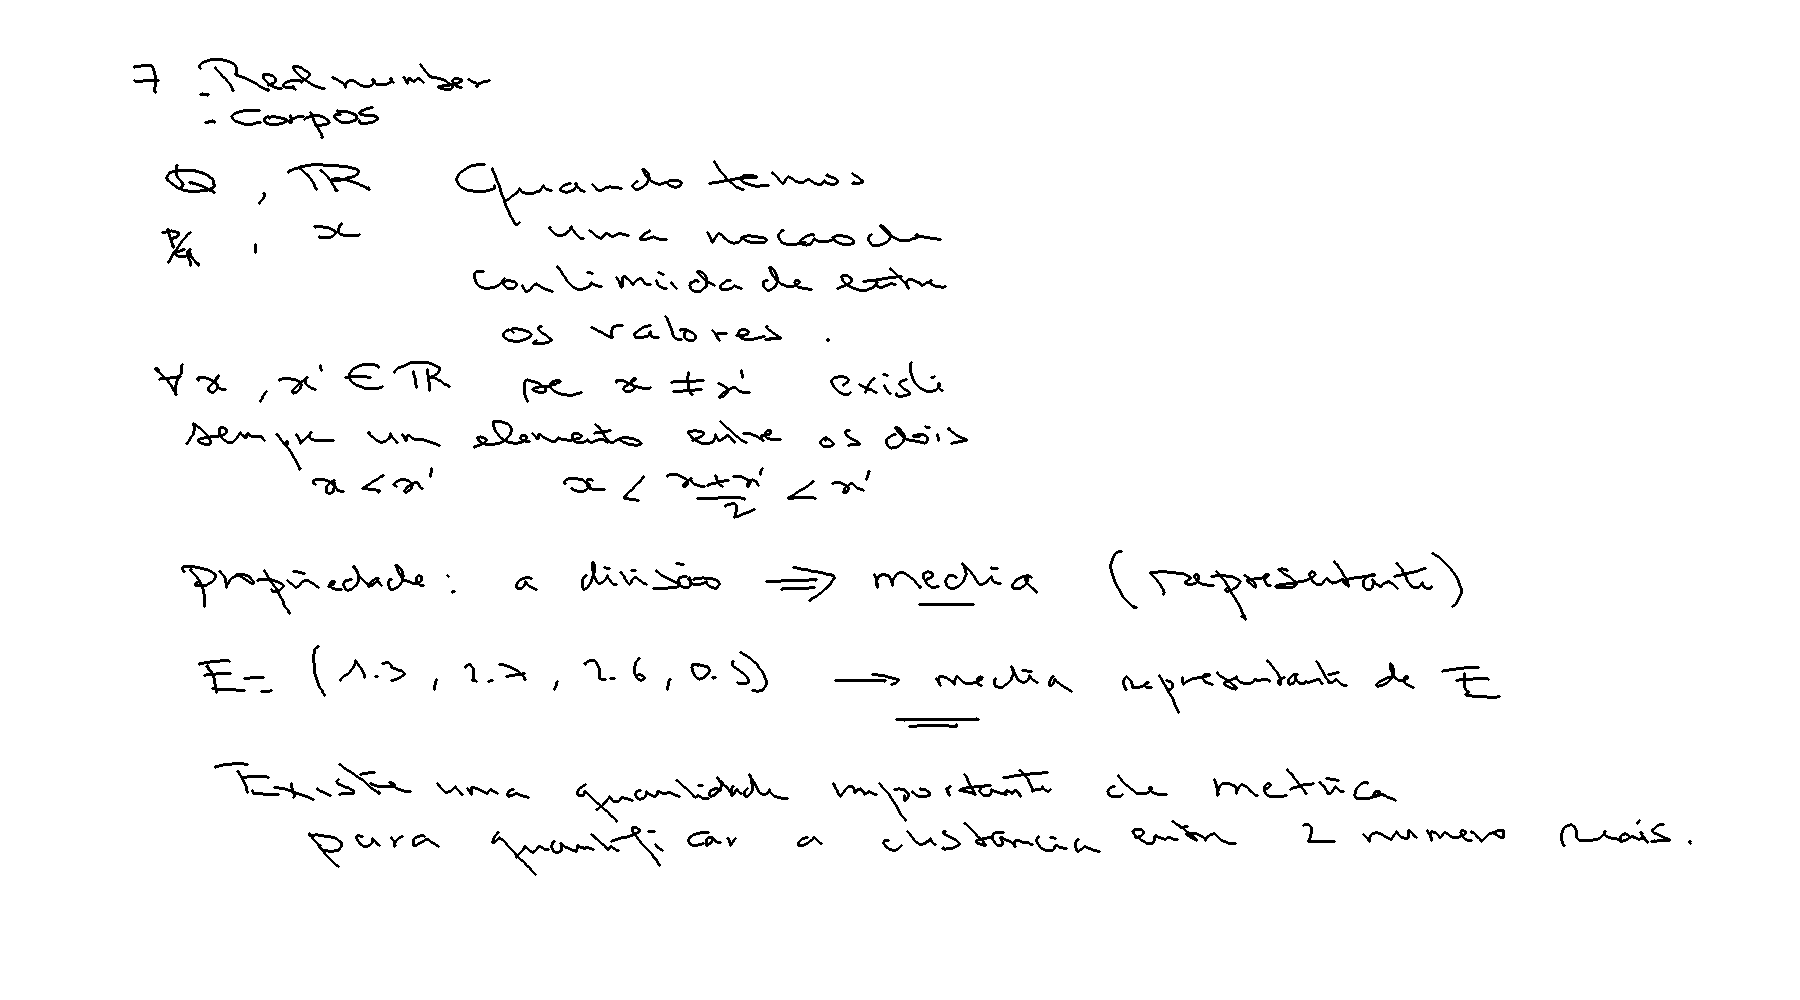 7 - Real number
- Corpos
ℚ , ℝ Quando temos
p/q , x uma nocao de
continuidade entre
os valores .
∀x , x' ∈ ℝ se x ≠ x' existe
sempre um elemento entre os dois
x < x' x < (x+x')/2 < x'
propriedade : a divisão ⇒ media (representante)
E = (1.3 , 2.7 , 2.6 , 0.5) → media representante de E
Existe uma quantidade importante de metrica
para quantificar a distancia entre 2 numero reais.